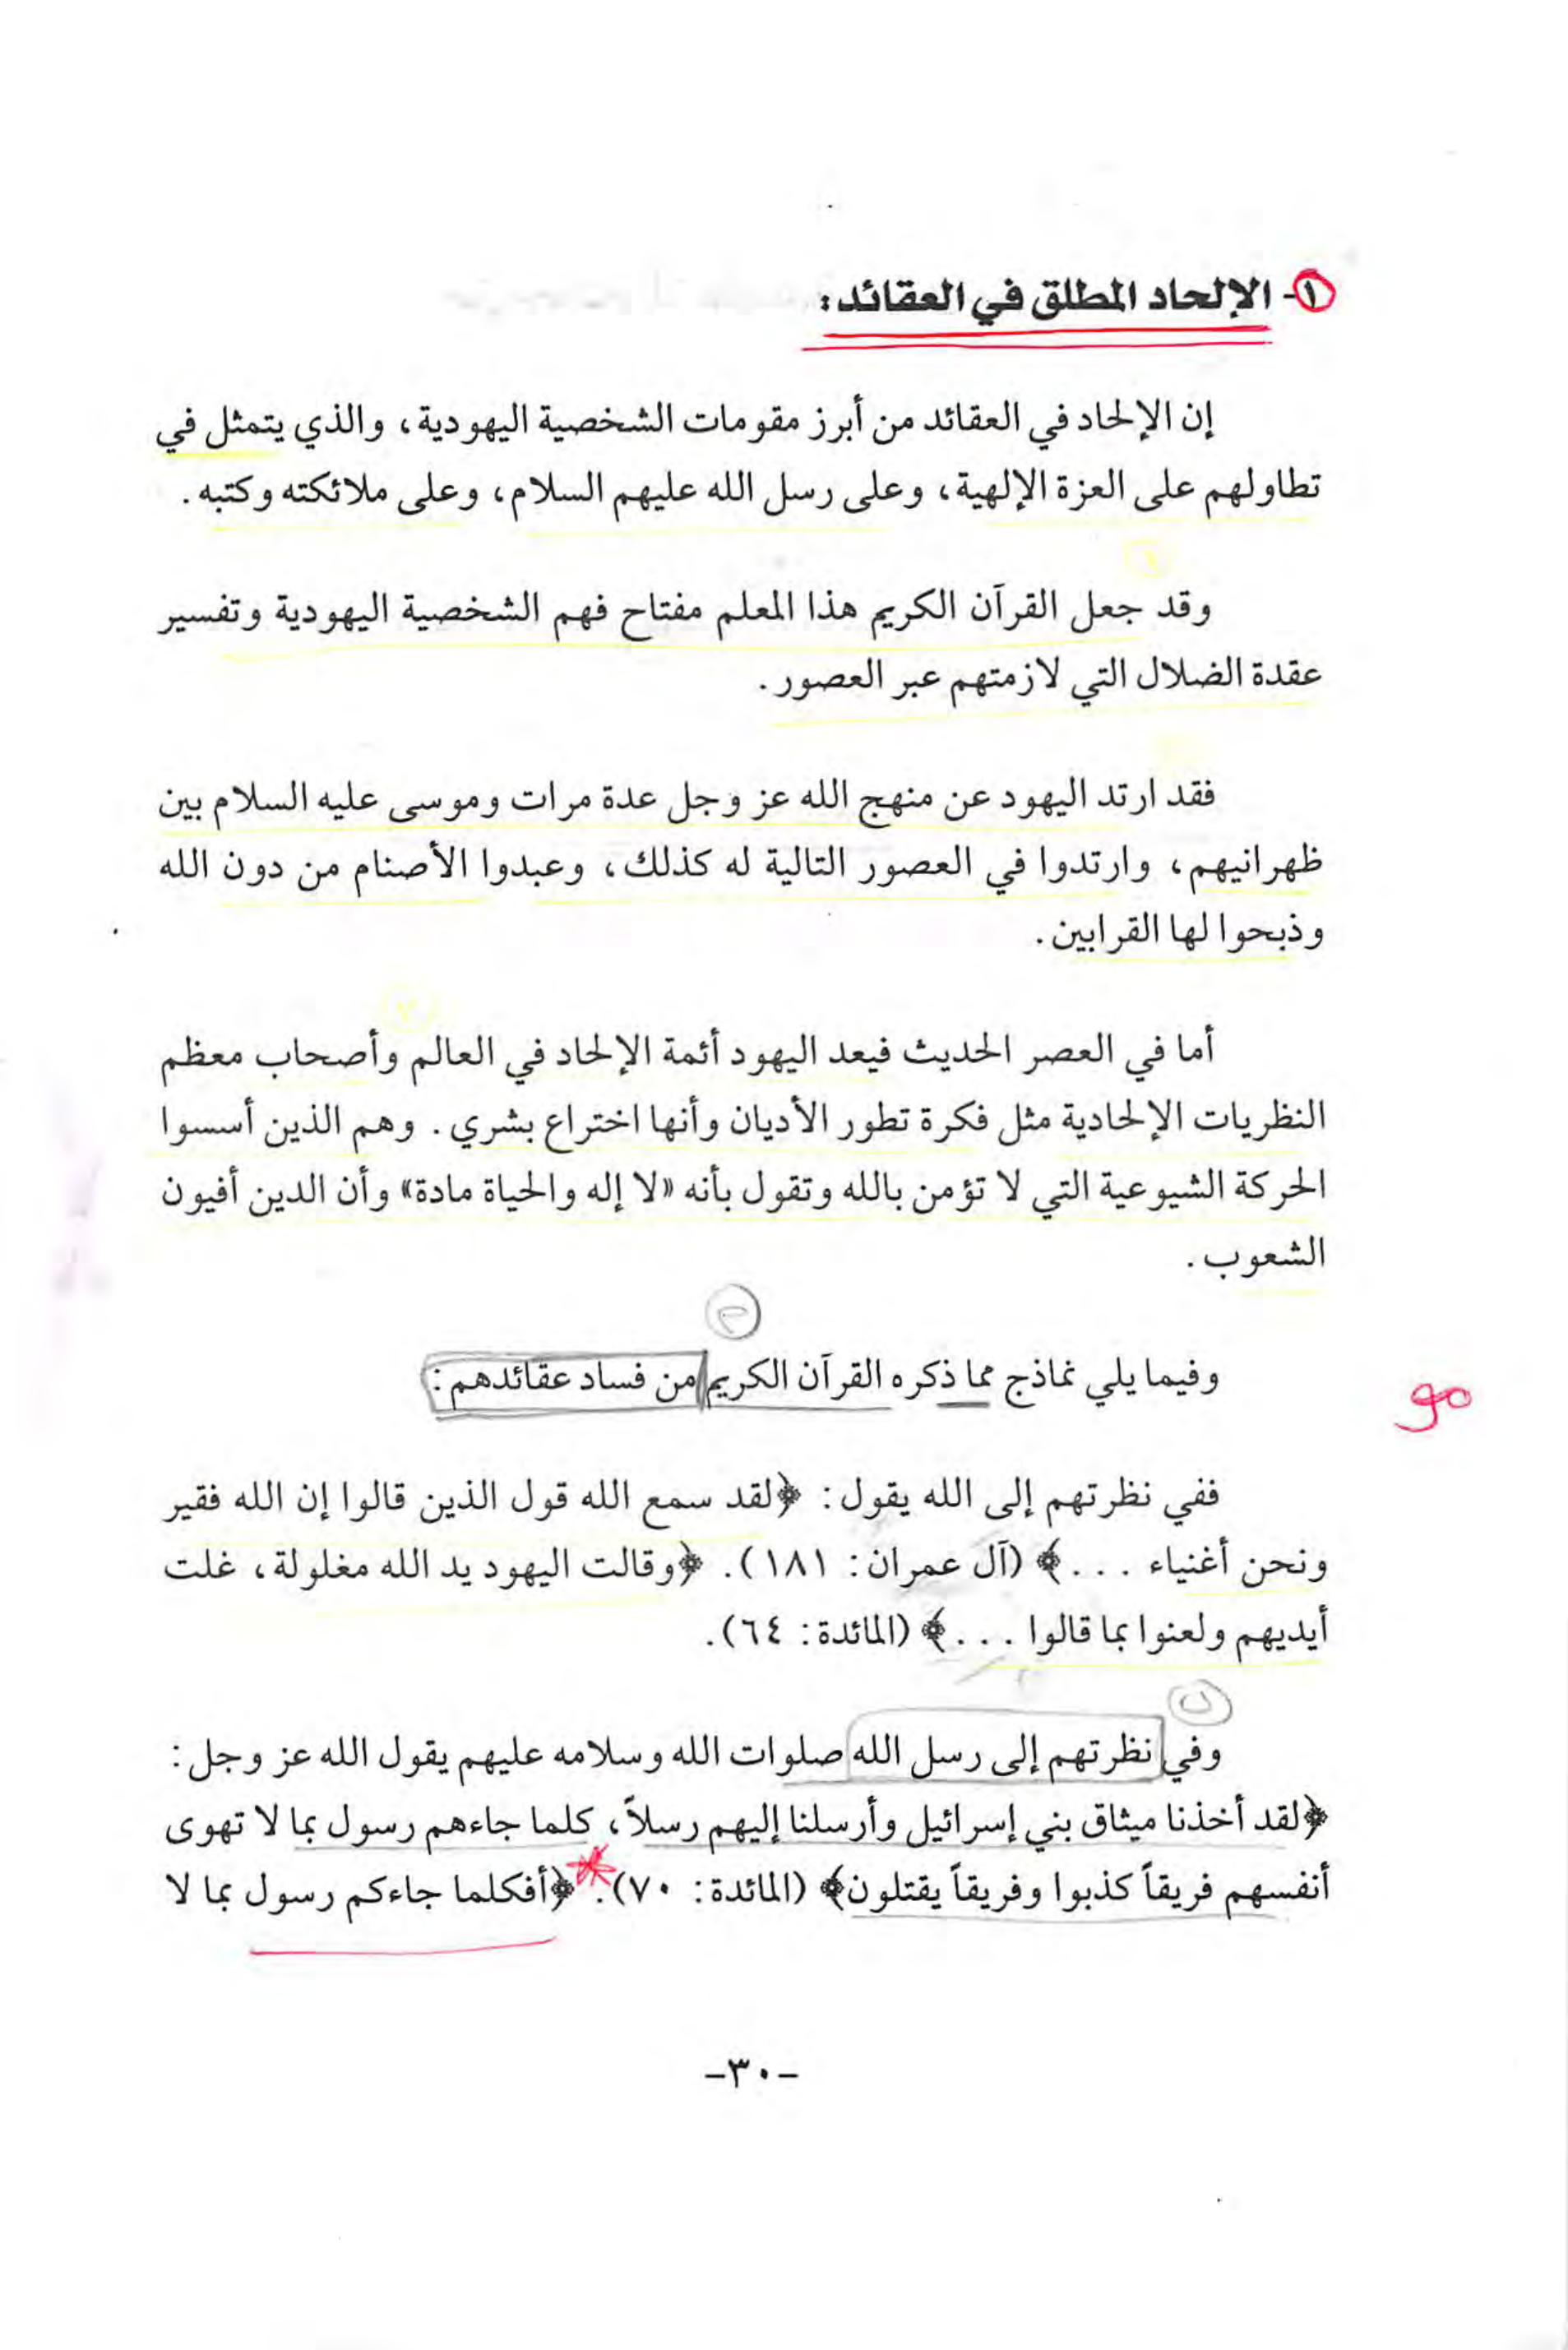 ١- الإلحاد المطلق في العقائد:
إن الإلحاد في العقائد من أبرز مقومات الشخصية اليهودية، والذي يتمثل في
تطاولهم على العزة الإلهية، وعلى رسل الله عليهم السلام، وعلى ملائكته وكتبه.
وقد جعل القرآن الكريم هذا المعلم مفتاح فهم الشخصية اليهودية وتفسير
عقدة الضلال التي لازمتهم عبر العصور.
فقد ارتد اليهود عن منهج الله عز وجل عدة مرات وموسى عليه السلام بين
ظهرانيهم، وارتدوا في العصور التالية له كذلك، وعبدوا الأصنام من دون الله
وذبحوا لها القرابين.
أما في العصر الحديث فيعد اليهود أئمة الإلحاد في العالم وأصحاب معظم
النظريات الإلحادية مثل فكرة تطور الأديان وأنها اختراع بشري. وهم الذين أسسوا
الحركة الشيوعية التي لا تؤمن بالله وتقول بأنه «لا إله والحياة مادة» وأن الدين أفيون
الشعوب.
وفيما يلي نماذج مما ذكره القرآن الكريم من فساد عقائدهم:
ففي نظرتهم إلى الله يقول: ﴿لقد سمع الله قول الذين قالوا إن الله فقير
ونحن أغنياء ...﴾ (آل عمران: ١٨١). ﴿وقالت اليهود يد الله مغلولة، غلت
أيديهم ولعنوا بما قالوا ...﴾ (المائدة: ٦٤).
وفي نظرتهم إلى رسل الله صلوات الله وسلامه عليهم يقول الله عز وجل:
﴿لقد أخذنا ميثاق بني إسرائيل وأرسلنا إليهم رسلاً، كلما جاءهم رسول بما لا تهوى
أنفسهم فريقاً كذبوا وفريقاً يقتلون﴾ (المائدة: ٧٠). ﴿أفكلما جاءكم رسول بما لا
-٣٠-